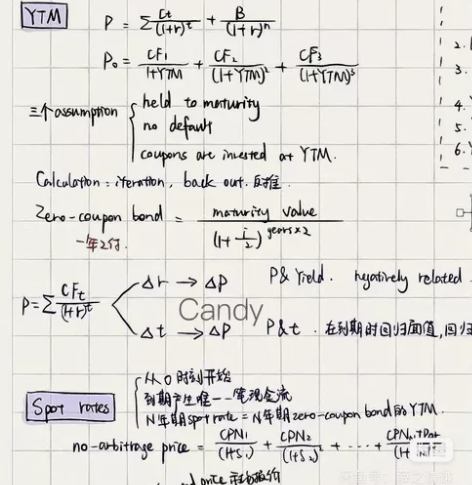 YTM P = Σ Ct/(1+r)^t + B/(1+r)^n
P₀ = CF₁/(1+YTM) + CF₂/(1+YTM)² + CF₃/(1+YTM)³
三个assumption { held to maturity
no default
coupons are invested at YTM.
Calculation: iteration, back out. 反推.
Zero-coupon bond = maturity value/(1+i/2)^(years×2)
一年2付.
P = Σ CFt/(1+r)^t
Δr → ΔP P & Yield. negatively related
Candy
Δt → ΔP P & t. 在到期时回归面值,回归
Spot rates { 从0时刻开始
到期产生唯一一笔现金流
N年期spot rate = N年期zero-coupon bond的YTM.
no-arbitrage price = CPN₁/(1+S₁) + CPN₂/(1+S₂)² + ... +
price
2.
3.
4.
5.
6.